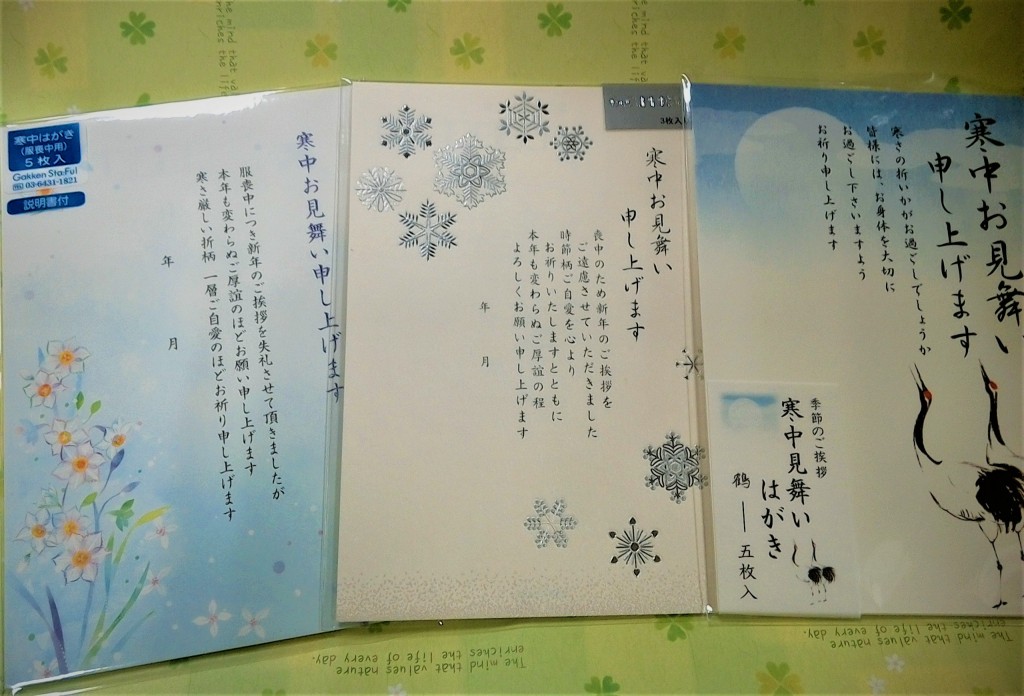 寒中はがき
(服喪中用)
5枚入
Gakken Sta:Ful
03-6431-1821
説明書付
寒中お見舞い申し上げます
服喪中につき新年のご挨拶を失礼させて頂きましたが
本年も変わらぬご厚誼のほどお願い申し上げます
寒さ厳しい折柄 一層ご自愛のほどお祈り申し上げます
年 月
3枚入
寒中お見舞い
申し上げます
喪中のため新年のご挨拶を
ご遠慮させていただきました
時節柄ご自愛を心より
お祈りいたしますとともに
本年も変わらぬご厚誼の程
よろしくお願い申し上げます
年 月
寒中お見舞い
申し上げます
寒さの折いかがお過ごしでしょうか
皆様には、お身体を大切に
お過ごし下さいますよう
お祈り申し上げます
季節のご挨拶
寒中見舞い
はがき
鶴 — 五枚入
The mind that values nature
enriches the life of every day.
The mind that values nature
enriches the life of every day.